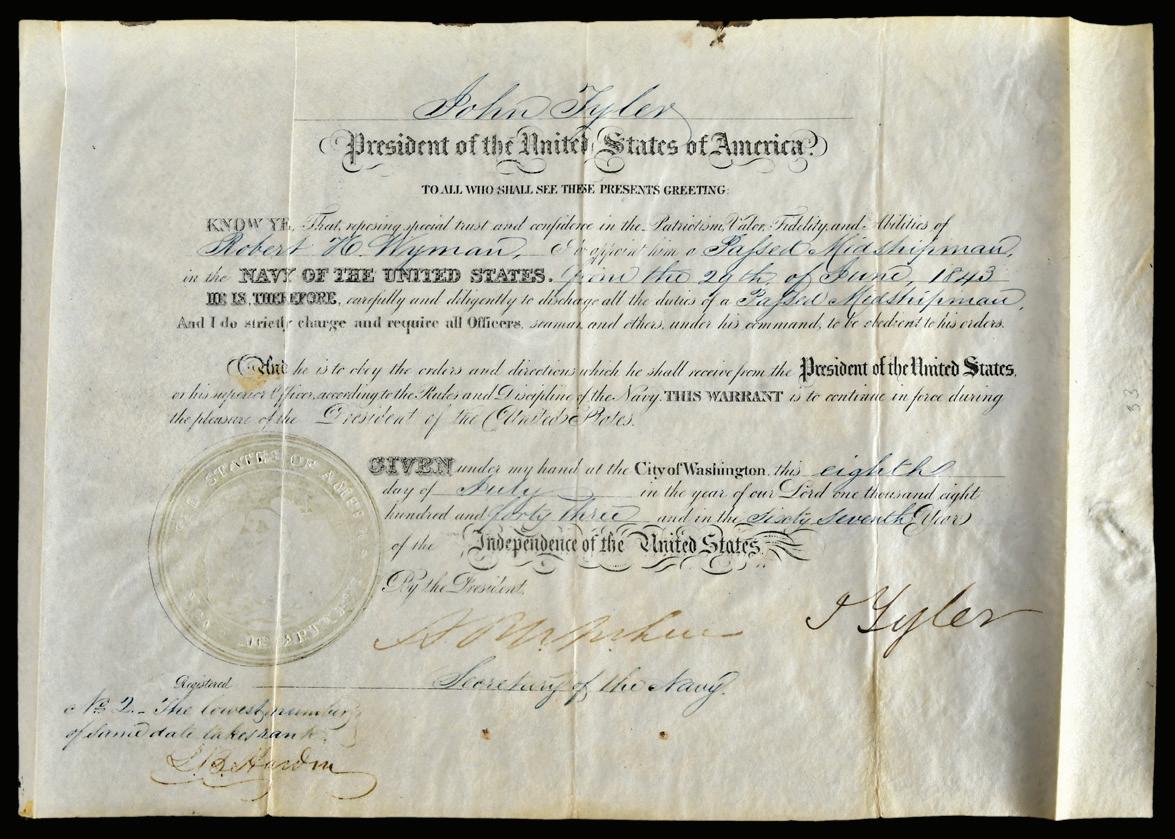 John Tyler
President of the United States of America.
TO ALL WHO SHALL SEE THESE PRESENTS GREETING:
KNOW YE, That, reposing special trust and confidence in the Patriotism, Valor, Fidelity, and Abilities of
Robert H. Wyman, I do appoint him a Passed Midshipman,
in the NAVY OF THE UNITED STATES. from the 29th of June, 1843
HE IS, THEREFORE, carefully and diligently to discharge all the duties of a Passed Midshipman,
And I do strictly charge and require all Officers, seamen and others, under his command, to be obedient to his orders.
And he is to obey the orders and directions which he shall receive from the President of the United States,
or his superior Officer, according to the Rules and Discipline of the Navy. THIS WARRANT is to continue in force during
the pleasure of the President of the United States.
GIVEN under my hand at the City of Washington, this eighth
day of July in the year of our Lord one thousand eight
hundred and forty three and in the sixty seventh Year
of the Independence of the United States.
By the President,
J Tyler
Secretary of the Navy.
Registered
No 2. The lowest number
of same date takes rank.
STATES OF AMERICA
NAVY DEPARTMENT
33